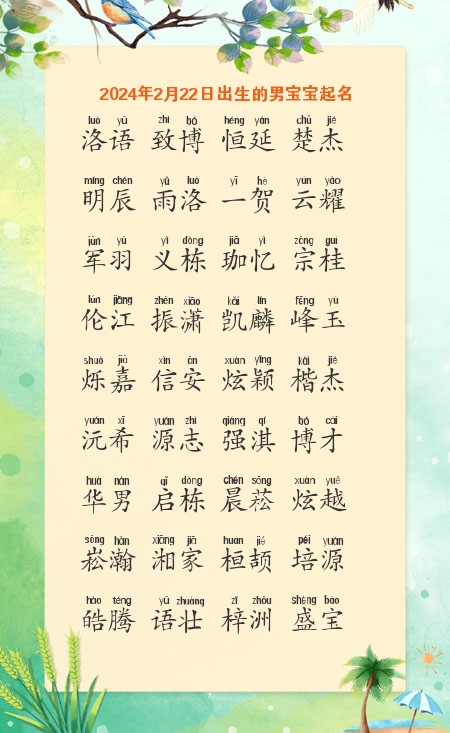 2024年2月22日出生的男宝宝起名
luò yǔ zhì bó héng yán chǔ jié
洛语 致博 恒延 楚杰
míng chén yǔ luò yī hè yún yào
明辰 雨洛 一贺 云耀
jūn yǔ yì dòng jiā yì zōng guì
军羽 义栋 珈忆 宗桂
lún jiāng zhèn xiāo kǎi lín fēng yù
伦江 振潇 凯麟 峰玉
shuò jiā xìn ān xuàn yǐng kǎi jié
烁嘉 信安 炫颖 楷杰
yuán xī yuán zhì qiáng qí bó cái
沅希 源志 强淇 博才
huá nán qǐ dòng chén sōng xuàn yuè
华男 启栋 晨菘 炫越
sōng hàn xiāng jiā huán jié péi yuán
崧瀚 湘家 桓颉 培源
hào téng yǔ zhuàng zǐ zhōu shèng bǎo
皓腾 语壮 梓洲 盛宝